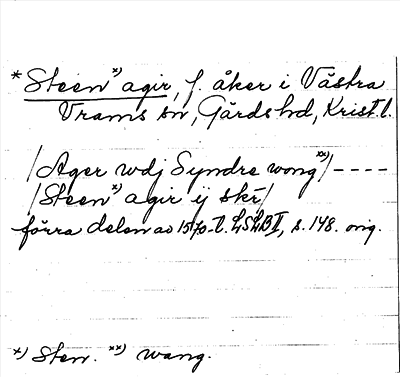 * Steen*) agir, f. åker i Västra
Vrams sn, Gärds hd, Krist. l.
/Ager wdj Syndre wong**)/ ----
/Steen*) agir ij skr/
förra delen av 1570-t. LSLB II, s. 148. orig.
*) Sten. **) wang.